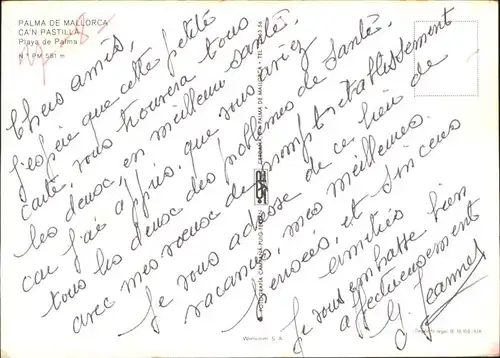 PALMA DE MALLORCA
CA'N PASTILLA
Playa de Palma
N.º PM 581 m
Chers amis,
J'espère que cette petite
carte, vous trouvera tous
les deux, en meilleure santé.
car j'ai appris que vous aviez
tous les deux des problèmes de santé.
avec mes vœux de prompt rétablissement
Je vous adresse de ce lieu de
vacances, mes meilleures
pensées, et sincères
amitiés
Je vous embrasse bien
affectueusement
G. Jeannet
FOTOGRAFIA CAMPAÑÁ PUIG FERRAN
PALMA DE MALLORCA - TEL.